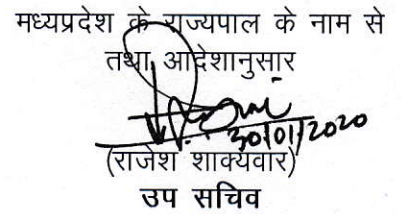 मध्यप्रदेश के राज्यपाल के नाम से
तथा आदेशानुसार
30/01/2020
(राजेश शाक्यवार)
उप सचिव